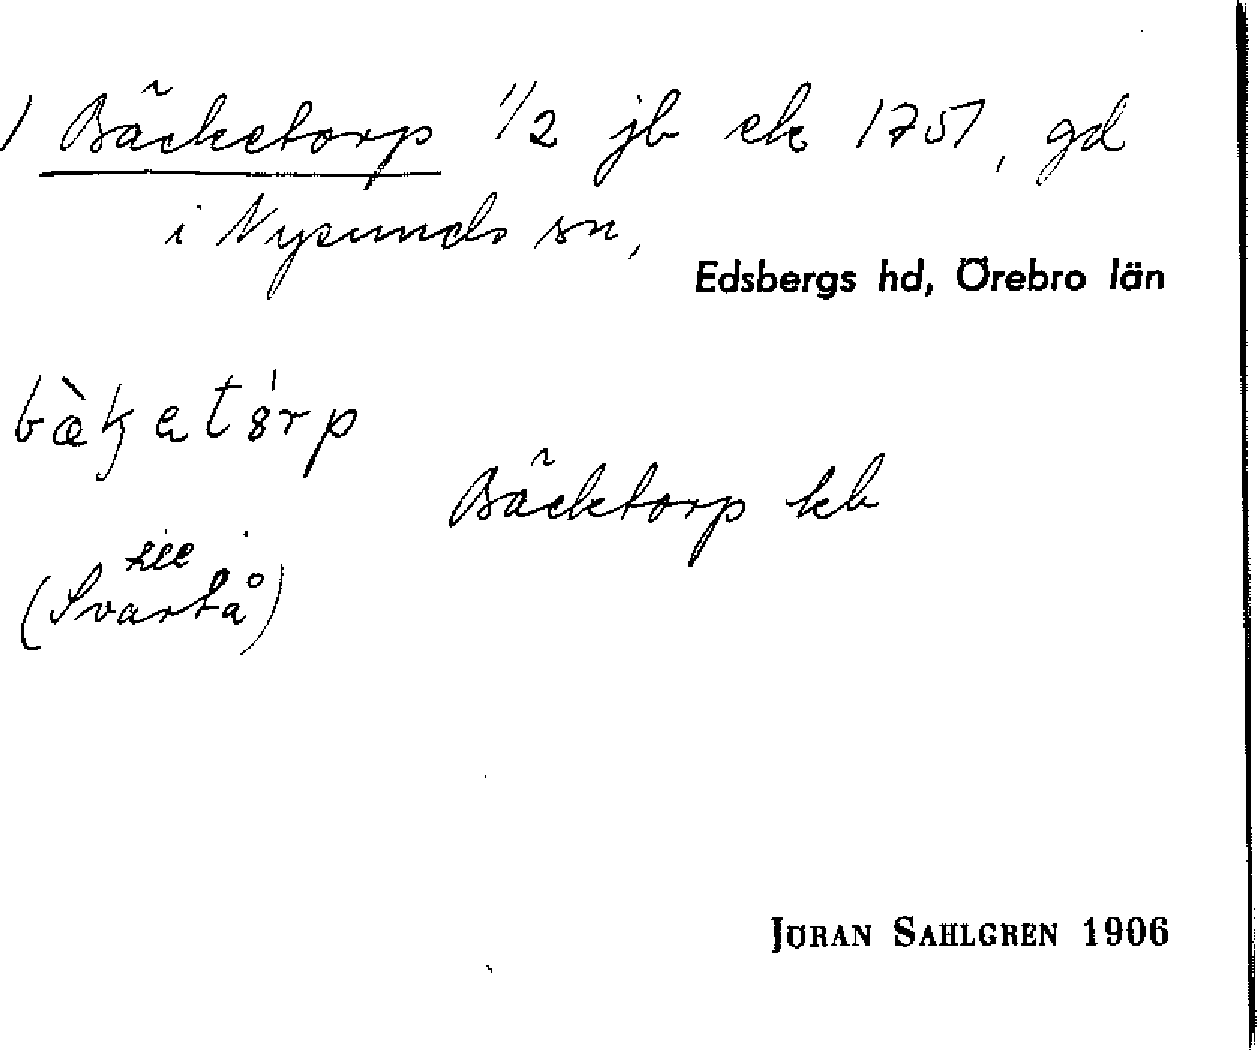 1 Bäcketorp 1/2 jb ek 1751, gd
i Nysunds sn,
Edsbergs hd, Örebro län
Bäcktorp kb
(Svartå)
JÖRAN SAHLGREN 1906